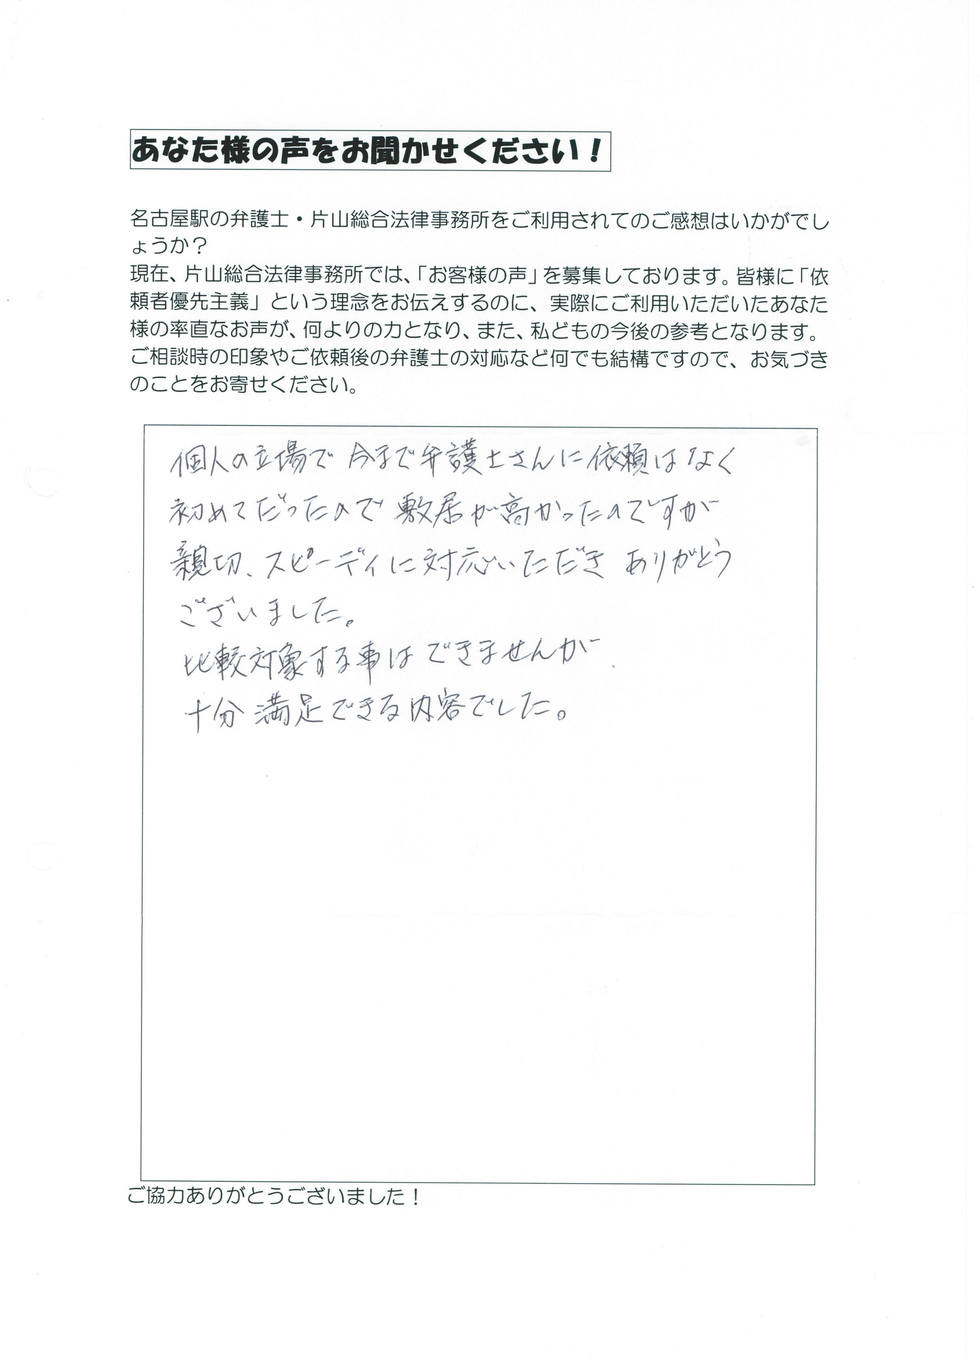 あなた様の声をお聞かせください！
名古屋駅の弁護士・片山総合法律事務所をご利用されてのご感想はいかがでし
ょうか？
現在、片山総合法律事務所では、「お客様の声」を募集しております。皆様に「依
頼者優先主義」という理念をお伝えするのに、実際にご利用いただいたあなた
様の率直なお声が、何よりの力となり、また、私どもの今後の参考となります。
ご相談時の印象やご依頼後の弁護士の対応など何でも結構ですので、お気づき
のことをお寄せください。
個人の立場で 今まで弁護士さんに依頼はなく
初めてだったので 敷居が高かったのですが
親切、スピーディに対応いただき ありがとう
ございました。
比較対象する事はできませんが、
十分満足できる内容でした。
ご協力ありがとうございました！